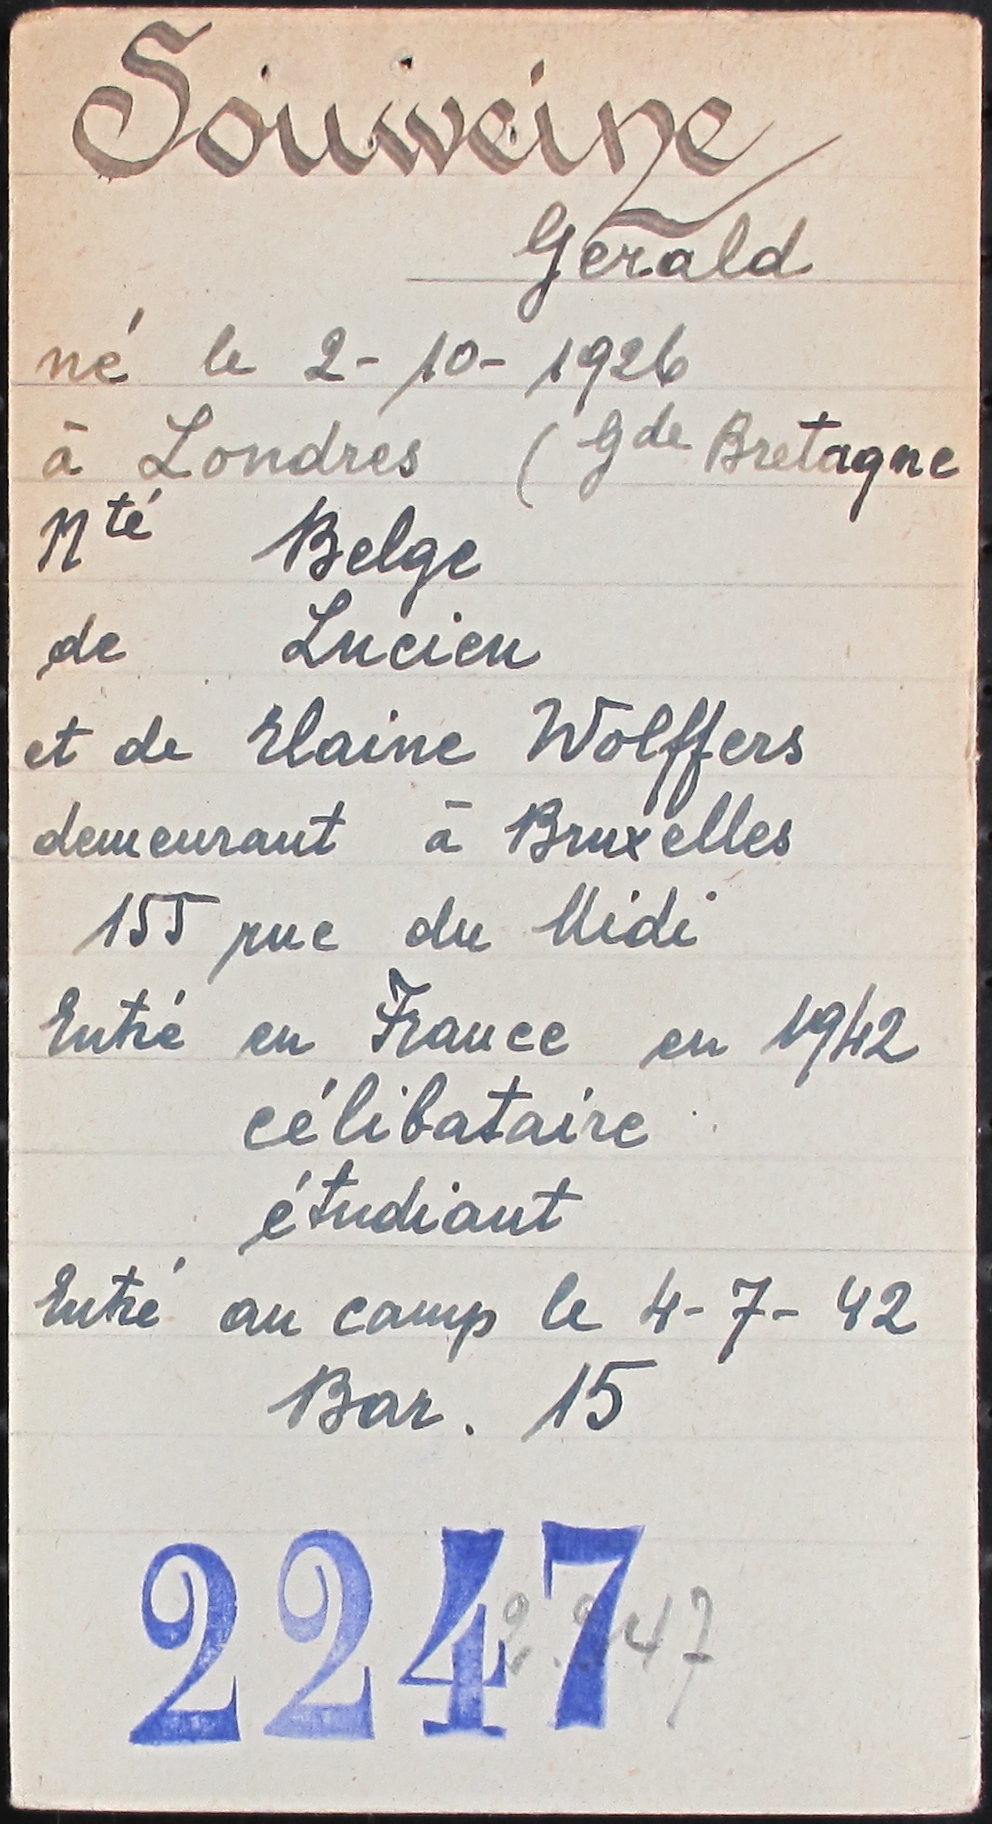 Souweine
Gerald
né le 2-10-1926
à Londres (Gde Bretagne
Nté Belge
de Lucien
et de Elaine Wolffers
demeurant à Bruxelles
155 rue du Midi
Entré en France en 1942
célibataire
étudiant
Entré au camp le 4-7-42
Bar. 15
2247
2.247